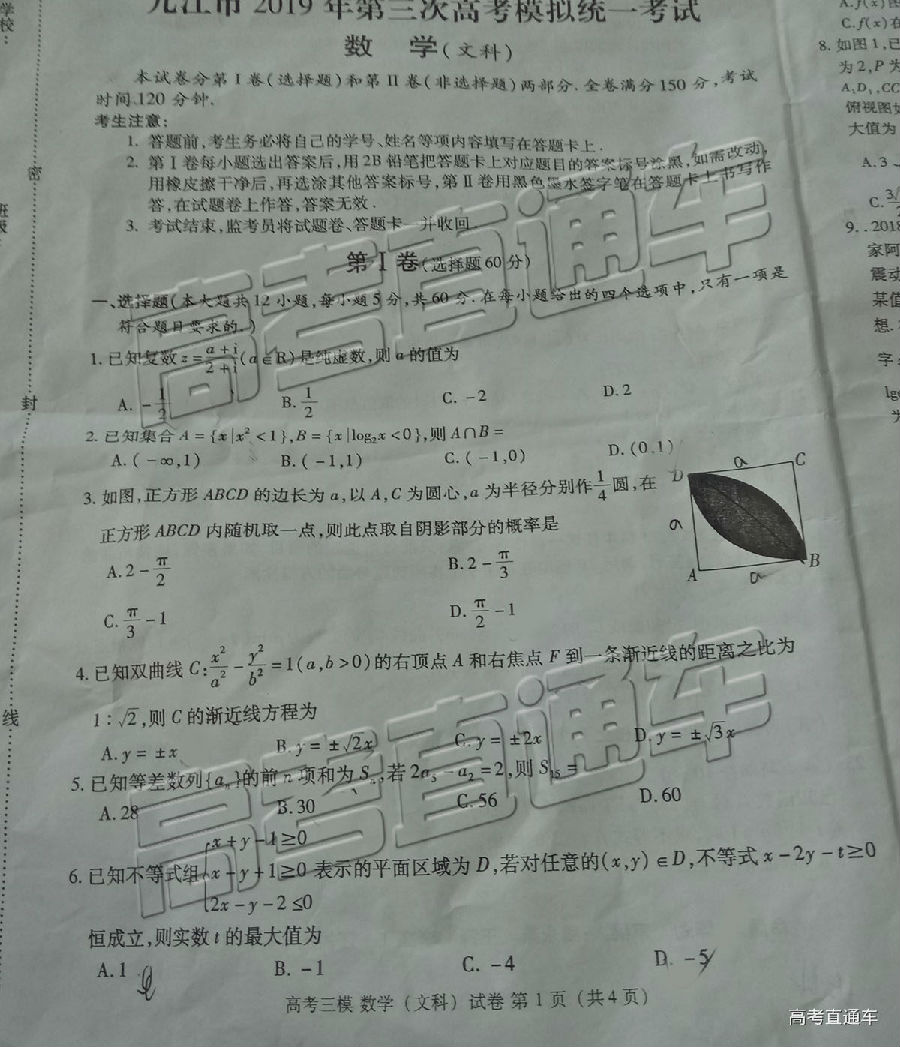 九江市2019年第三次高考模拟统一考试
数 学(文科)
本试卷分第Ⅰ卷(选择题)和第Ⅱ卷(非选择题)两部分.全卷满分150分,考试
时间120分钟.
考生注意:
1. 答题前,考生务必将自己的学号、姓名等项内容填写在答题卡上.
2. 第Ⅰ卷每小题选出答案后,用2B铅笔把答题卡上对应题目的答案标号涂黑,如需改动,
用橡皮擦干净后,再选涂其他答案标号,第Ⅱ卷用黑色墨水签字笔在答题卡上书写作
答,在试题卷上作答,答案无效.
3. 考试结束,监考员将试题卷、答题卡一并收回.
第Ⅰ卷(选择题60分)
一、选择题(本大题共12小题,每小题5分,共60分.在每小题给出的四个选项中,只有一项是
符合题目要求的.)
1.已知复数z=(a+i)/(2+i)(a∈R)是纯虚数,则a的值为
A. -1/2 B. 1/2 C. -2 D. 2
2. 已知集合A={x|x²<1},B={x|log₂x<0},则A∩B=
A.(-∞,1) B.(-1,1) C.(-1,0) D.(0,1)
3. 如图,正方形ABCD的边长为a,以A,C为圆心,a为半径分别作1/4圆,在
正方形ABCD内随机取一点,则此点取自阴影部分的概率是
A. 2-π/2 B. 2-π/3
C. π/3-1 D. π/2-1
D a C
a
A a B
4. 已知双曲线C:x²/a²-y²/b²=1(a,b>0)的右顶点A和右焦点F到一条渐近线的距离之比为
1:√2,则C的渐近线方程为
A. y=±x B. y=±√2x C. y=±2x D. y=±√3x
5. 已知等差数列{aₙ}的前n项和为Sₙ,若2a₅-a₂=2,则S₁₅=
A. 28 B. 30 C. 56 D. 60
x+y-1≥0
6. 已知不等式组{x-y+1≥0表示的平面区域为D,若对任意的(x,y)∈D,不等式x-2y-t≥0
2x-y-2≤0
恒成立,则实数t的最大值为
A. 1 B. -1 C. -4 D. -5
高考三模 数学(文科)试卷 第1页(共4页)
学校:
密
封
线
A.f(x)
C.f(x)在
8. 如图1,已
为2,P为
A₁D₁,CC
俯视图
大值为
A.3
9. .2018
家阿
震动
某值
想.
字
高考直通车
高考直通车
高考直通车